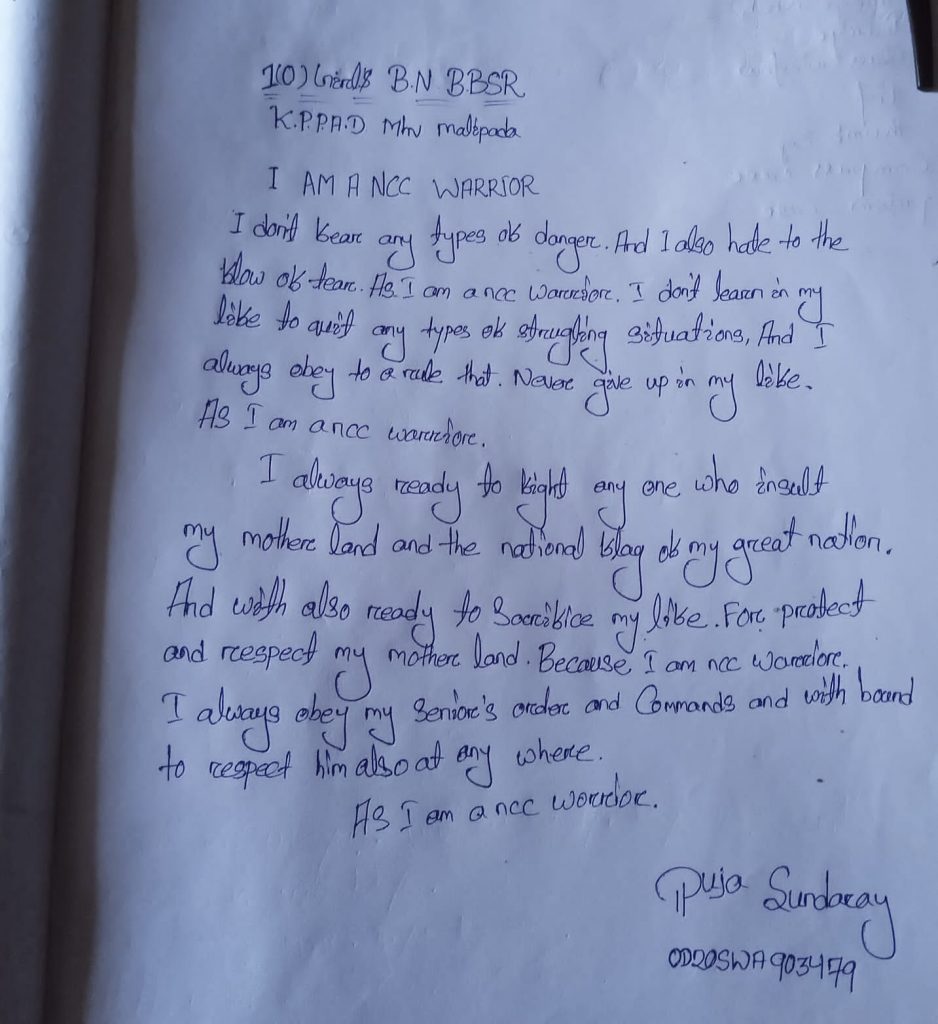 1(O) Girls B.N BBSR
K.P.P.A.D Mhv malipada
I AM A NCC WARRIOR
I don't fear any types of danger. And I also hate to the
flow of tear. As I am a ncc warrior. I don't learn in my
life to quit any types of strugling situations, And I
always obey to a rule that. Never give up in my life.
As I am a ncc warrior.
I always ready to fight any one who insult
my mother land and the national flag of my great nation.
And with also ready to Sacrifice my life. For protect
and respect my mother land. Because, I am ncc warrior.
I always obey my Senior's order and Commands and with bound
to respect him also at any where.
As I am a ncc worrior.
Puja Sundaray
OD20SWA903479